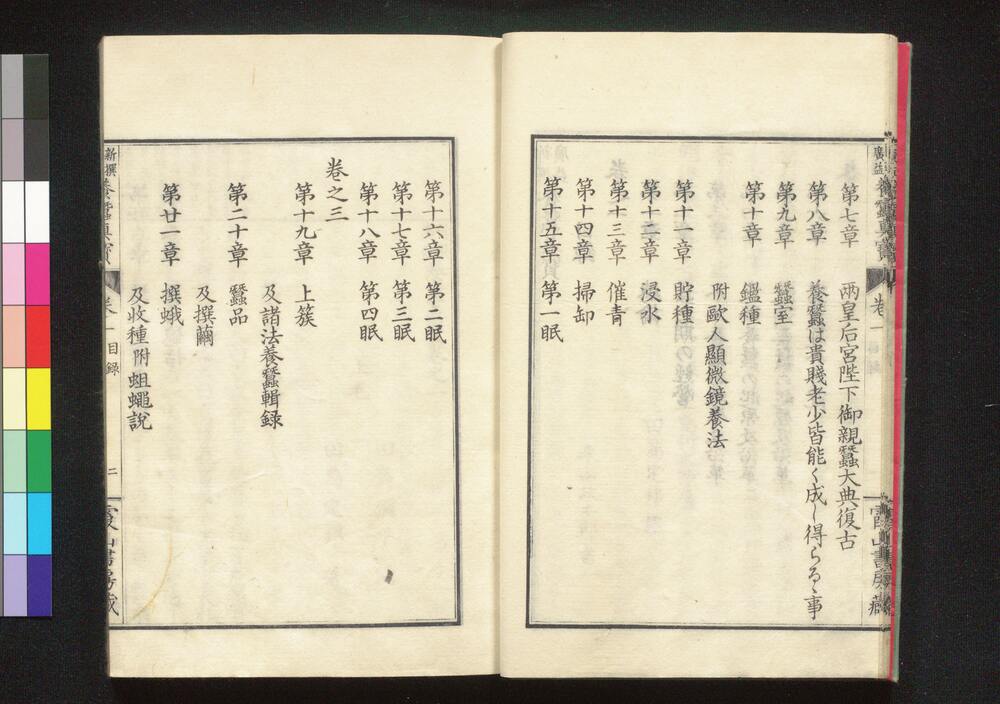 第七章 兩皇后宮陛下御親蠶大典復古
第八章 養蠶は貴賤老少皆能く成し得らるゝ事
第九章 蠶室
第十章 鑑種
附歐人顯微鏡養法
第十一章 貯種
第十二章 浸水
第十三章 催青
第十四章 掃卸
第十五章 第一眠
第十六章 第二眠
第十七章 第三眠
第十八章 第四眠
卷之三
第十九章 上簇
及諸法養蠶輯録
第二十章 蠶品
及撰繭
第廿一章 撰蛾
及收種附蛆蠅說
目録
二